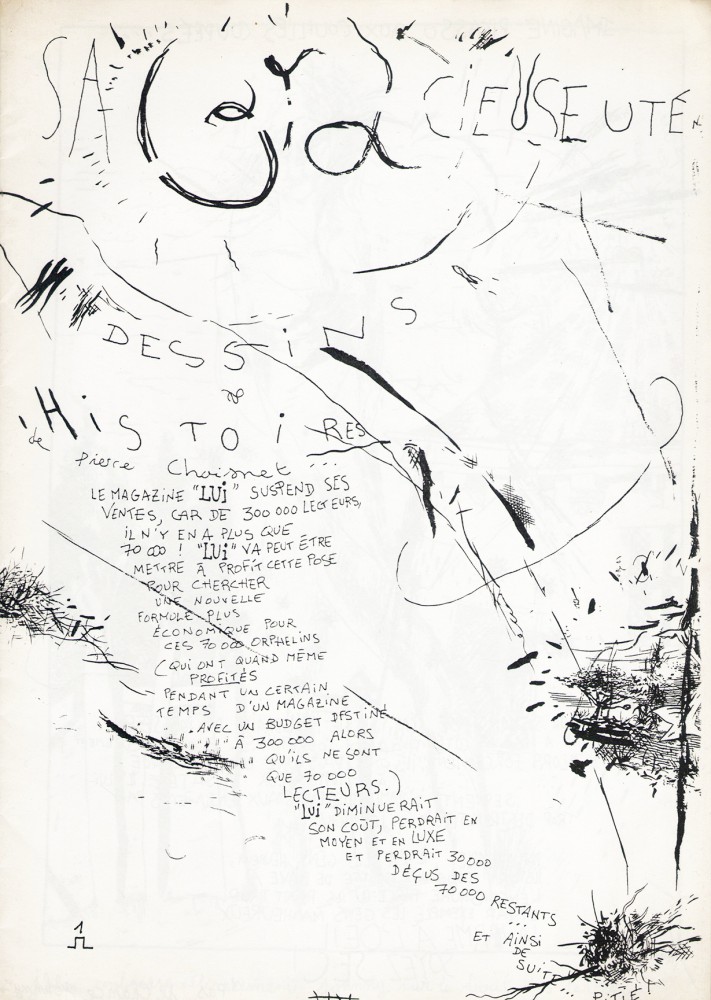 SA GRACIEUSEUTÉ
DESSINS
&
HISTOIRES
de
Pierre Choisnet ...
LE MAGAZINE "LUi" SUSPEND SES
VENTES, CAR DE 300 000 LECTEURS,
iL N'Y EN A PLUS QUE
70 000 ! "LUi" VA PEUT ÊTRE
METTRE À PROFIT CETTE POSE
POUR CHERCHER
UNE NOUVELLE
FORMULE PLUS
ÉCONOMIQUE POUR
CES 70 000 ORPHELINS
(QUI ONT QUAND MÊME
PROFITÉS
PENDANT UN CERTAIN
TEMPS D'UN MAGAZINE
AVEC UN BUDGET DESTINÉ
À 300 000 ALORS
QU'ILS NE SONT
QUE 70 000
LECTEURS.)
"LUi" DIMINUERAIT
SON COÛT, PERDRAIT EN
MOYEN ET EN LUXE
ET PERDRAIT 30 000
DÉÇUS DES
70 000 RESTANTS
...
ET AINSI
DE
SUITE... PITIÉ !
1